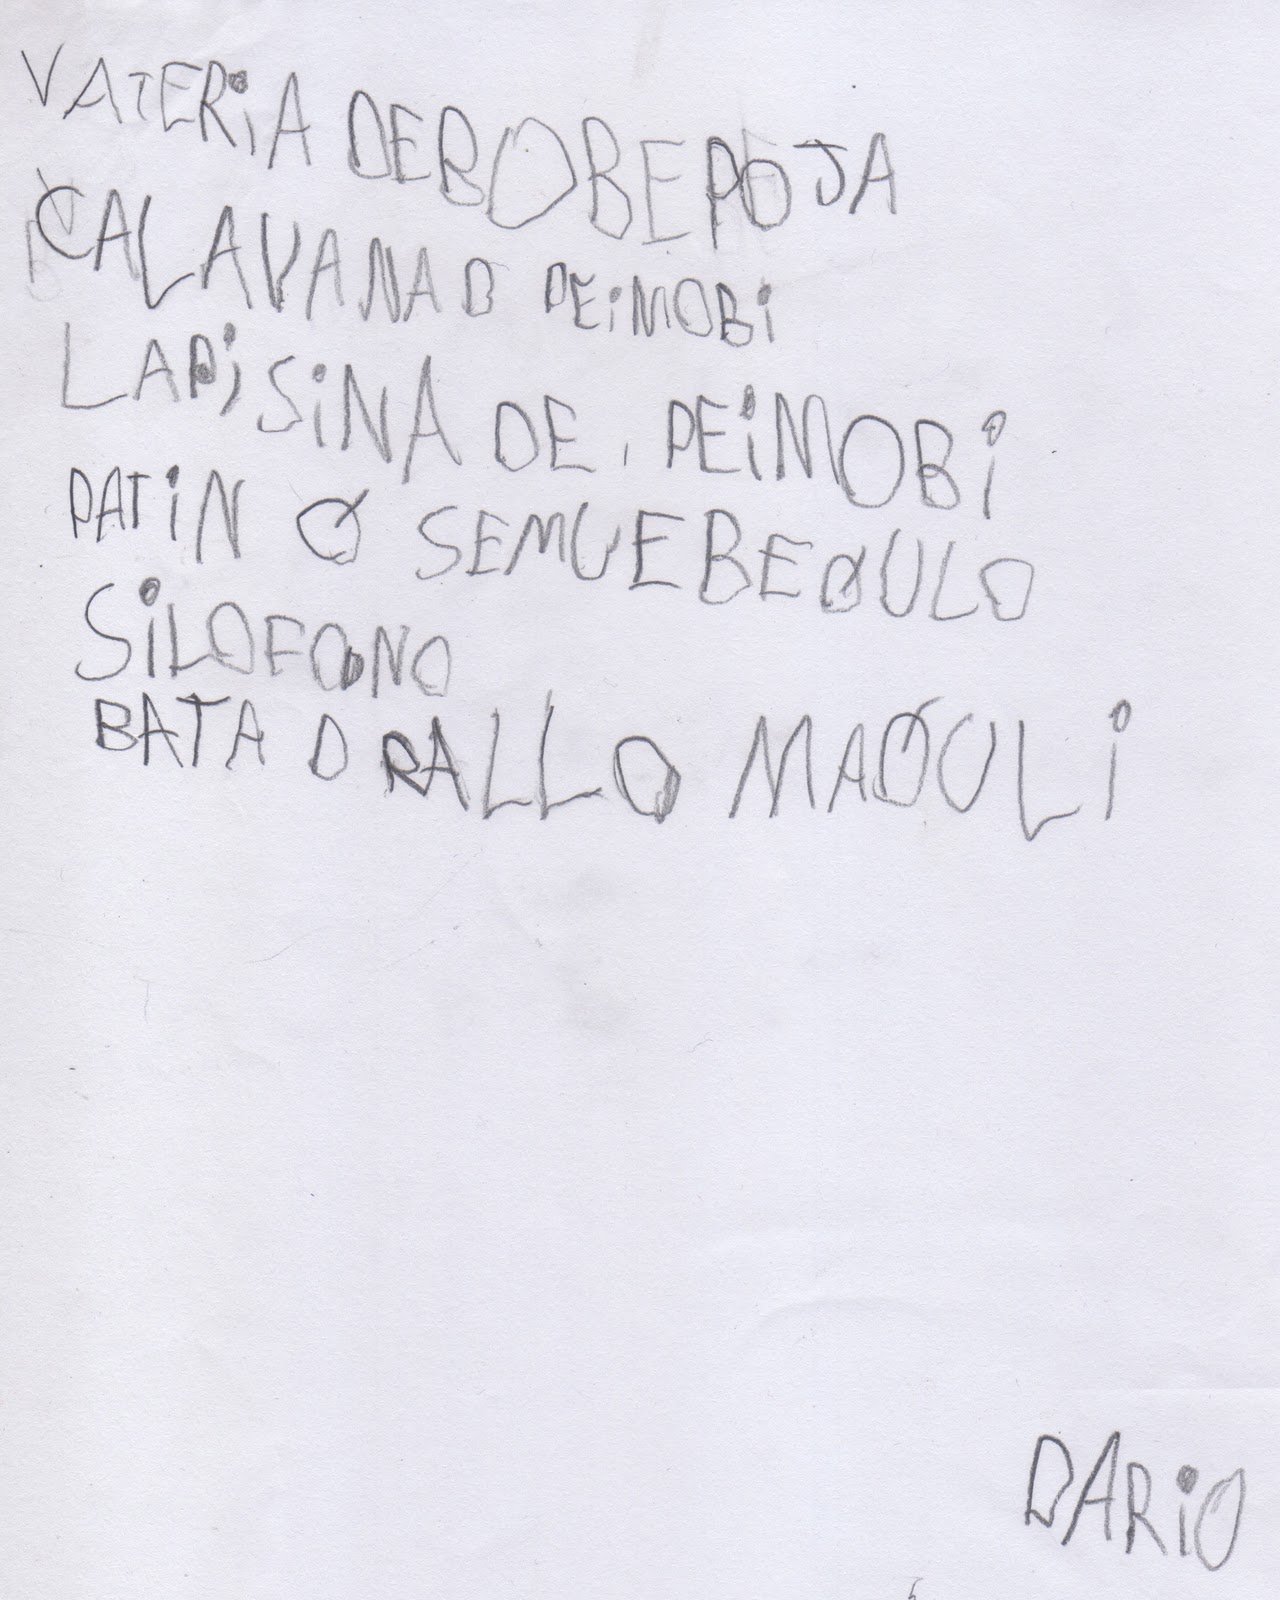 VATERIA DEBOBEPOJA
CALAVANA D PEiMOBi
LAPiSiNA DE PEiMOBi
PATiN Q SEMUEBEQULO
SiLOFONO
BATA D RALLO MAQULi
DARiO